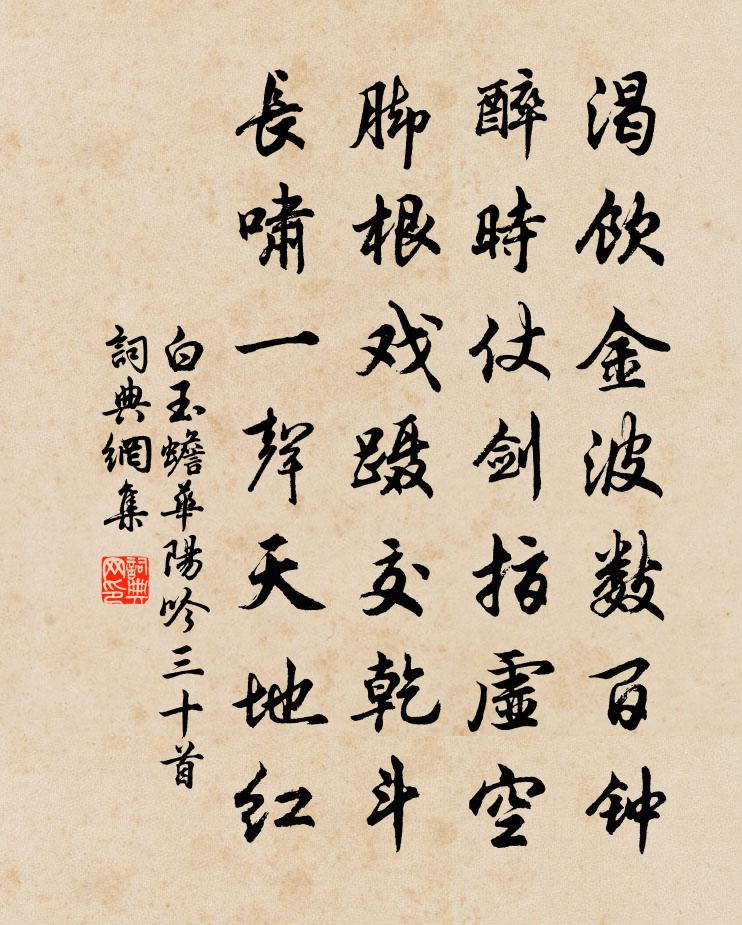 渴飲金波数百钟
醉時仗剑指虛空
脚根戏蹑交乾斗
長嘯一聲天地红
白玉蟾華陽吟三十首
詞典網集
詞典网印